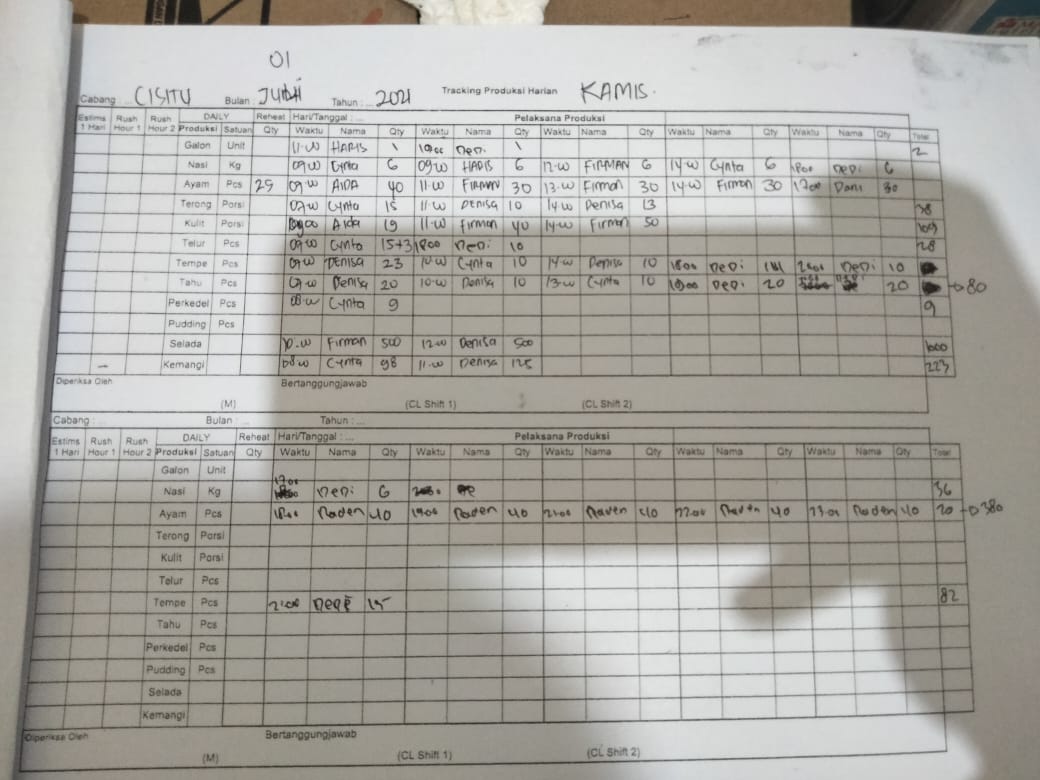 01
Cabang : CISITU Bulan : JUNI Tahun : 2021 Tracking Produksi Harian KAMIS.
Estims 1 Hari Rush Hour 1 Rush Hour 2 DAILY Reheat Hari/Tanggal : ... Pelaksana Produksi
Produksi Satuan Qty Waktu Nama Qty Waktu Nama Qty Waktu Nama Qty Waktu Nama Qty Waktu Nama Qty Total
Galon Unit 11.00 HARIS 1 1900 Depi 1 2
Nasi Kg 09.00 Cynta 6 09.00 HARIS 6 12.00 FIRMAN 6 14.00 Cynta 6 1800 Depi 6
Ayam Pcs 25 09.00 AIDA 40 11.00 FIRMAN 30 13.00 Firman 30 14.00 Firman 30 1700 Dani 30
Terong Porsi 07.00 Cynta 15 11.00 DENISA 10 14.00 Denisa 13 38
Kulit Porsi 0900 Aida 19 11.00 Firman 40 14.00 Firman 50 109
Telur Pcs 09.00 Cynta 15+3 1800 Depi 10 28
Tempe Pcs 09.00 DENISA 23 10.00 Cynta 10 14.00 Denisa 10 1800 Depi Depi 10
Tahu Pcs 09.00 Denisa 20 10.00 Denisa 10 13.00 Cynta 10 1900 Depi 20 20 → 80
Perkedel Pcs 08.00 Cynta 9 9
Pudding Pcs
Selada 10.00 Firman 500 12.00 Denisa 500 1000
– Kemangi 08.00 Cynta 98 11.00 Denisa 125 223
Diperiksa Oleh Bertanggungjawab
(M) (CL Shift 1) (CL Shift 2)
Cabang : ... Bulan : ... Tahun : ...
Estims 1 Hari Rush Hour 1 Rush Hour 2 DAILY Reheat Hari/Tanggal : ... Pelaksana Produksi
Produksi Satuan Qty Waktu Nama Qty Waktu Nama Qty Waktu Nama Qty Waktu Nama Qty Waktu Nama Qty Total
Galon Unit
Nasi Kg 1700 Depi 6 36
Ayam Pcs 1800 Raden 40 1900 Raden 40 2100 Raden 40 2200 Raden 40 2300 Raden 40 20 → 380
Terong Porsi
Kulit Porsi
Telur Pcs
Tempe Pcs 2100 Depe 15 82
Tahu Pcs
Perkedel Pcs
Pudding Pcs
Selada
Kemangi
Diperiksa Oleh Bertanggungjawab
(M) (CL Shift 1) (CL Shift 2)